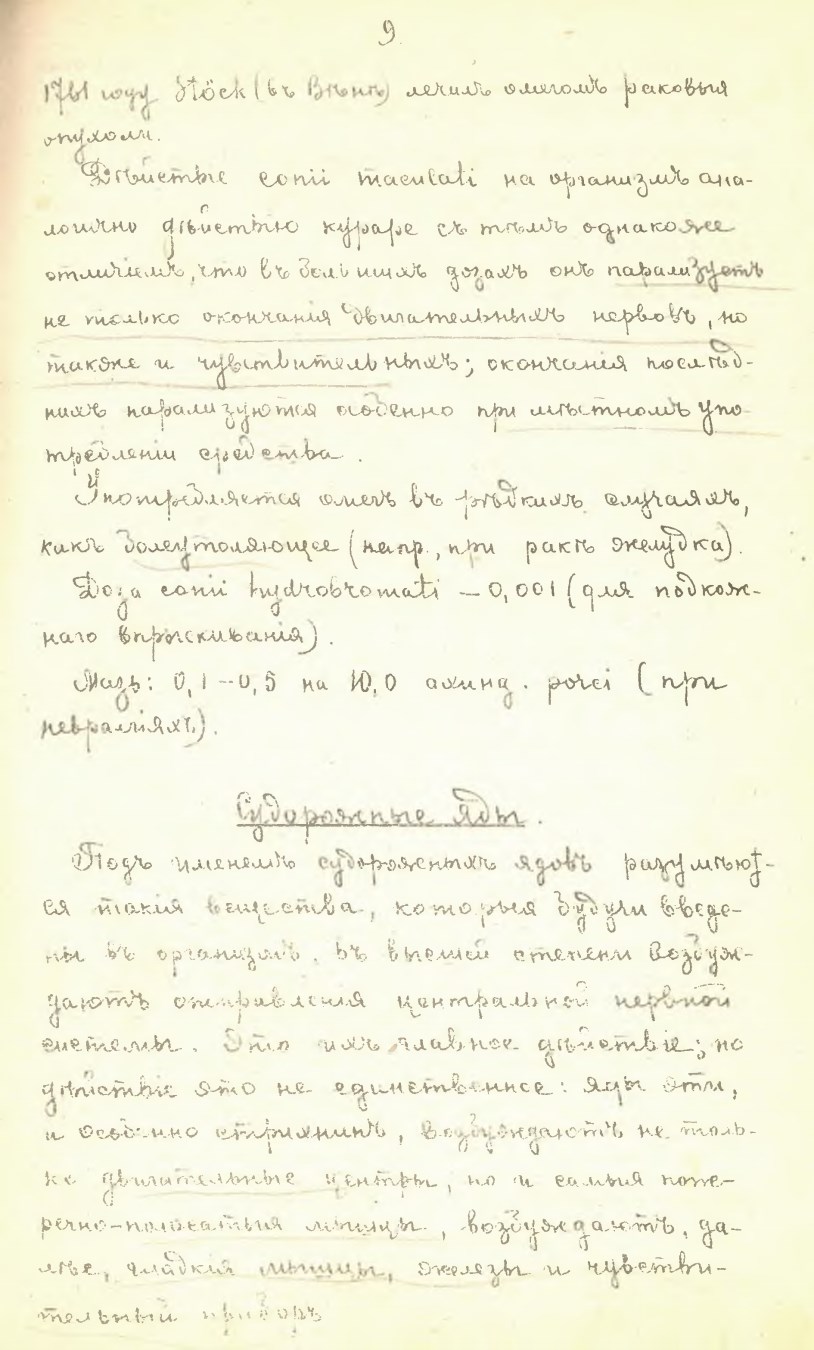 9
1761 году Stöck (въ Вѣнѣ) лечилъ омегомъ раковыя
опухоли.
Дѣйствіе conii maculati на организмъ ана-
логично дѣйствію кураре съ тѣмъ однакоже
отличіемъ, что въ большихъ дозахъ онъ парализуетъ
не только окончанія двигательныхъ нервовъ, но
также и чувствительныхъ; окончанія послѣд-
нихъ парализуются особенно при мѣстномъ упо-
требленіи средства.
Употребляется омегъ въ рѣдкихъ случаяхъ,
какъ болеутоляющее (напр., при ракѣ желудка).
Доза conii hydrobromati – 0,001 (для подкож-
наго впрыскиванія).
Мазь: 0,1–0,5 на 10,0 porci (при
невралгіяхъ).
Судорожные яды.
Подъ именемъ судорожныхъ ядовъ разумѣют-
ся такія вещества, которыя будучи введе-
ны въ организмъ, въ высшей степени возбуж-
даютъ отправленія центральной нервной
системы. Это ихъ главное дѣйствіе; но
дѣйствіе это не единственное: яды эти,
и особенно стрихнинъ, возбуждаютъ не толь-
ко двигательные центры, но и самыя попе-
речно-полосатыя мышцы, возбуждаютъ, да-
лѣе, гладкія мышцы, железы и чувстви-
тельный приборъ